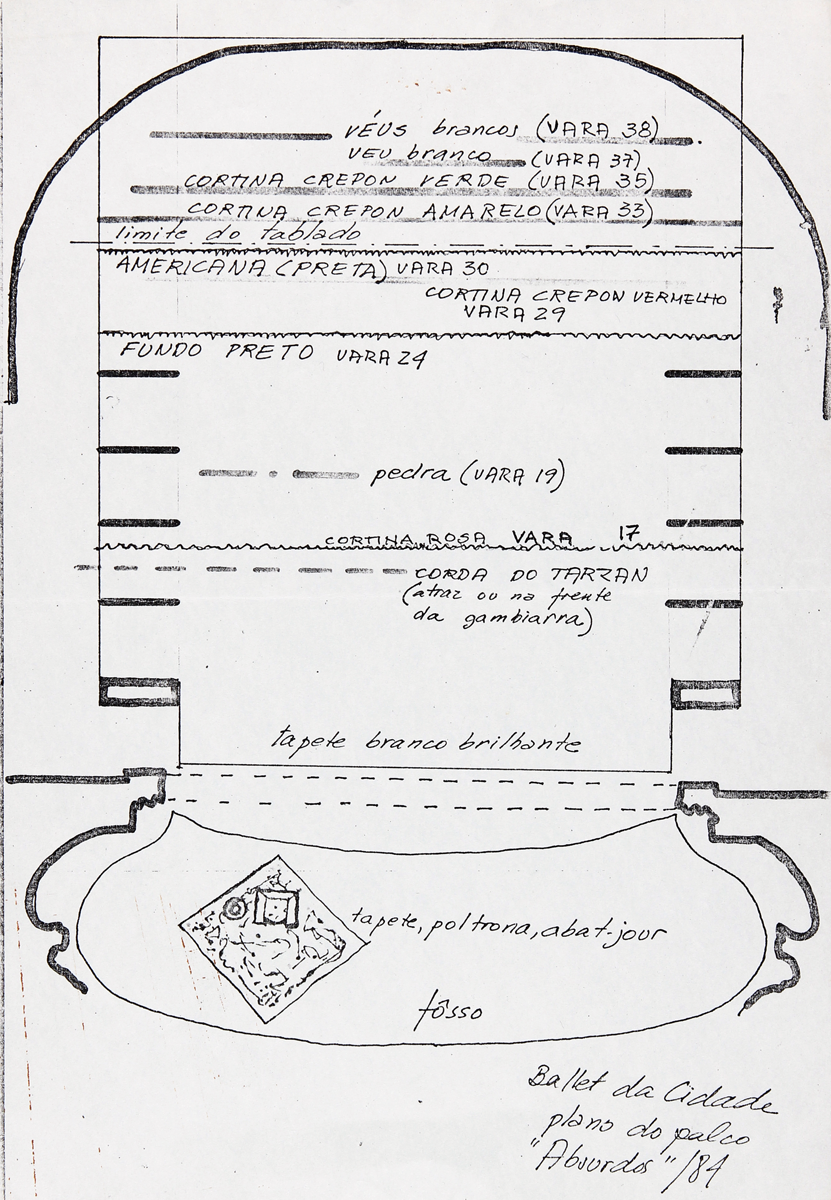 VÉUS brancos (VARA 38)
VEU branco (VARA 37)
CORTINA CREPON VERDE (VARA 35)
CORTINA CREPON AMARELO (VARA 33)
limite do tablado
AMERICANA (PRETA) VARA 30
CORTINA CREPON VERMELHO
VARA 29
FUNDO PRETO VARA 24
pedra (VARA 19)
CORTINA ROSA VARA 17
CORDA DO TARZAN
(atraz ou na frente
da gambiarra)
tapete branco brilhante
tapete, poltrona, abat-jour
fôsso
Ballet da Cidade
plano do palco
"Absurdos"/84